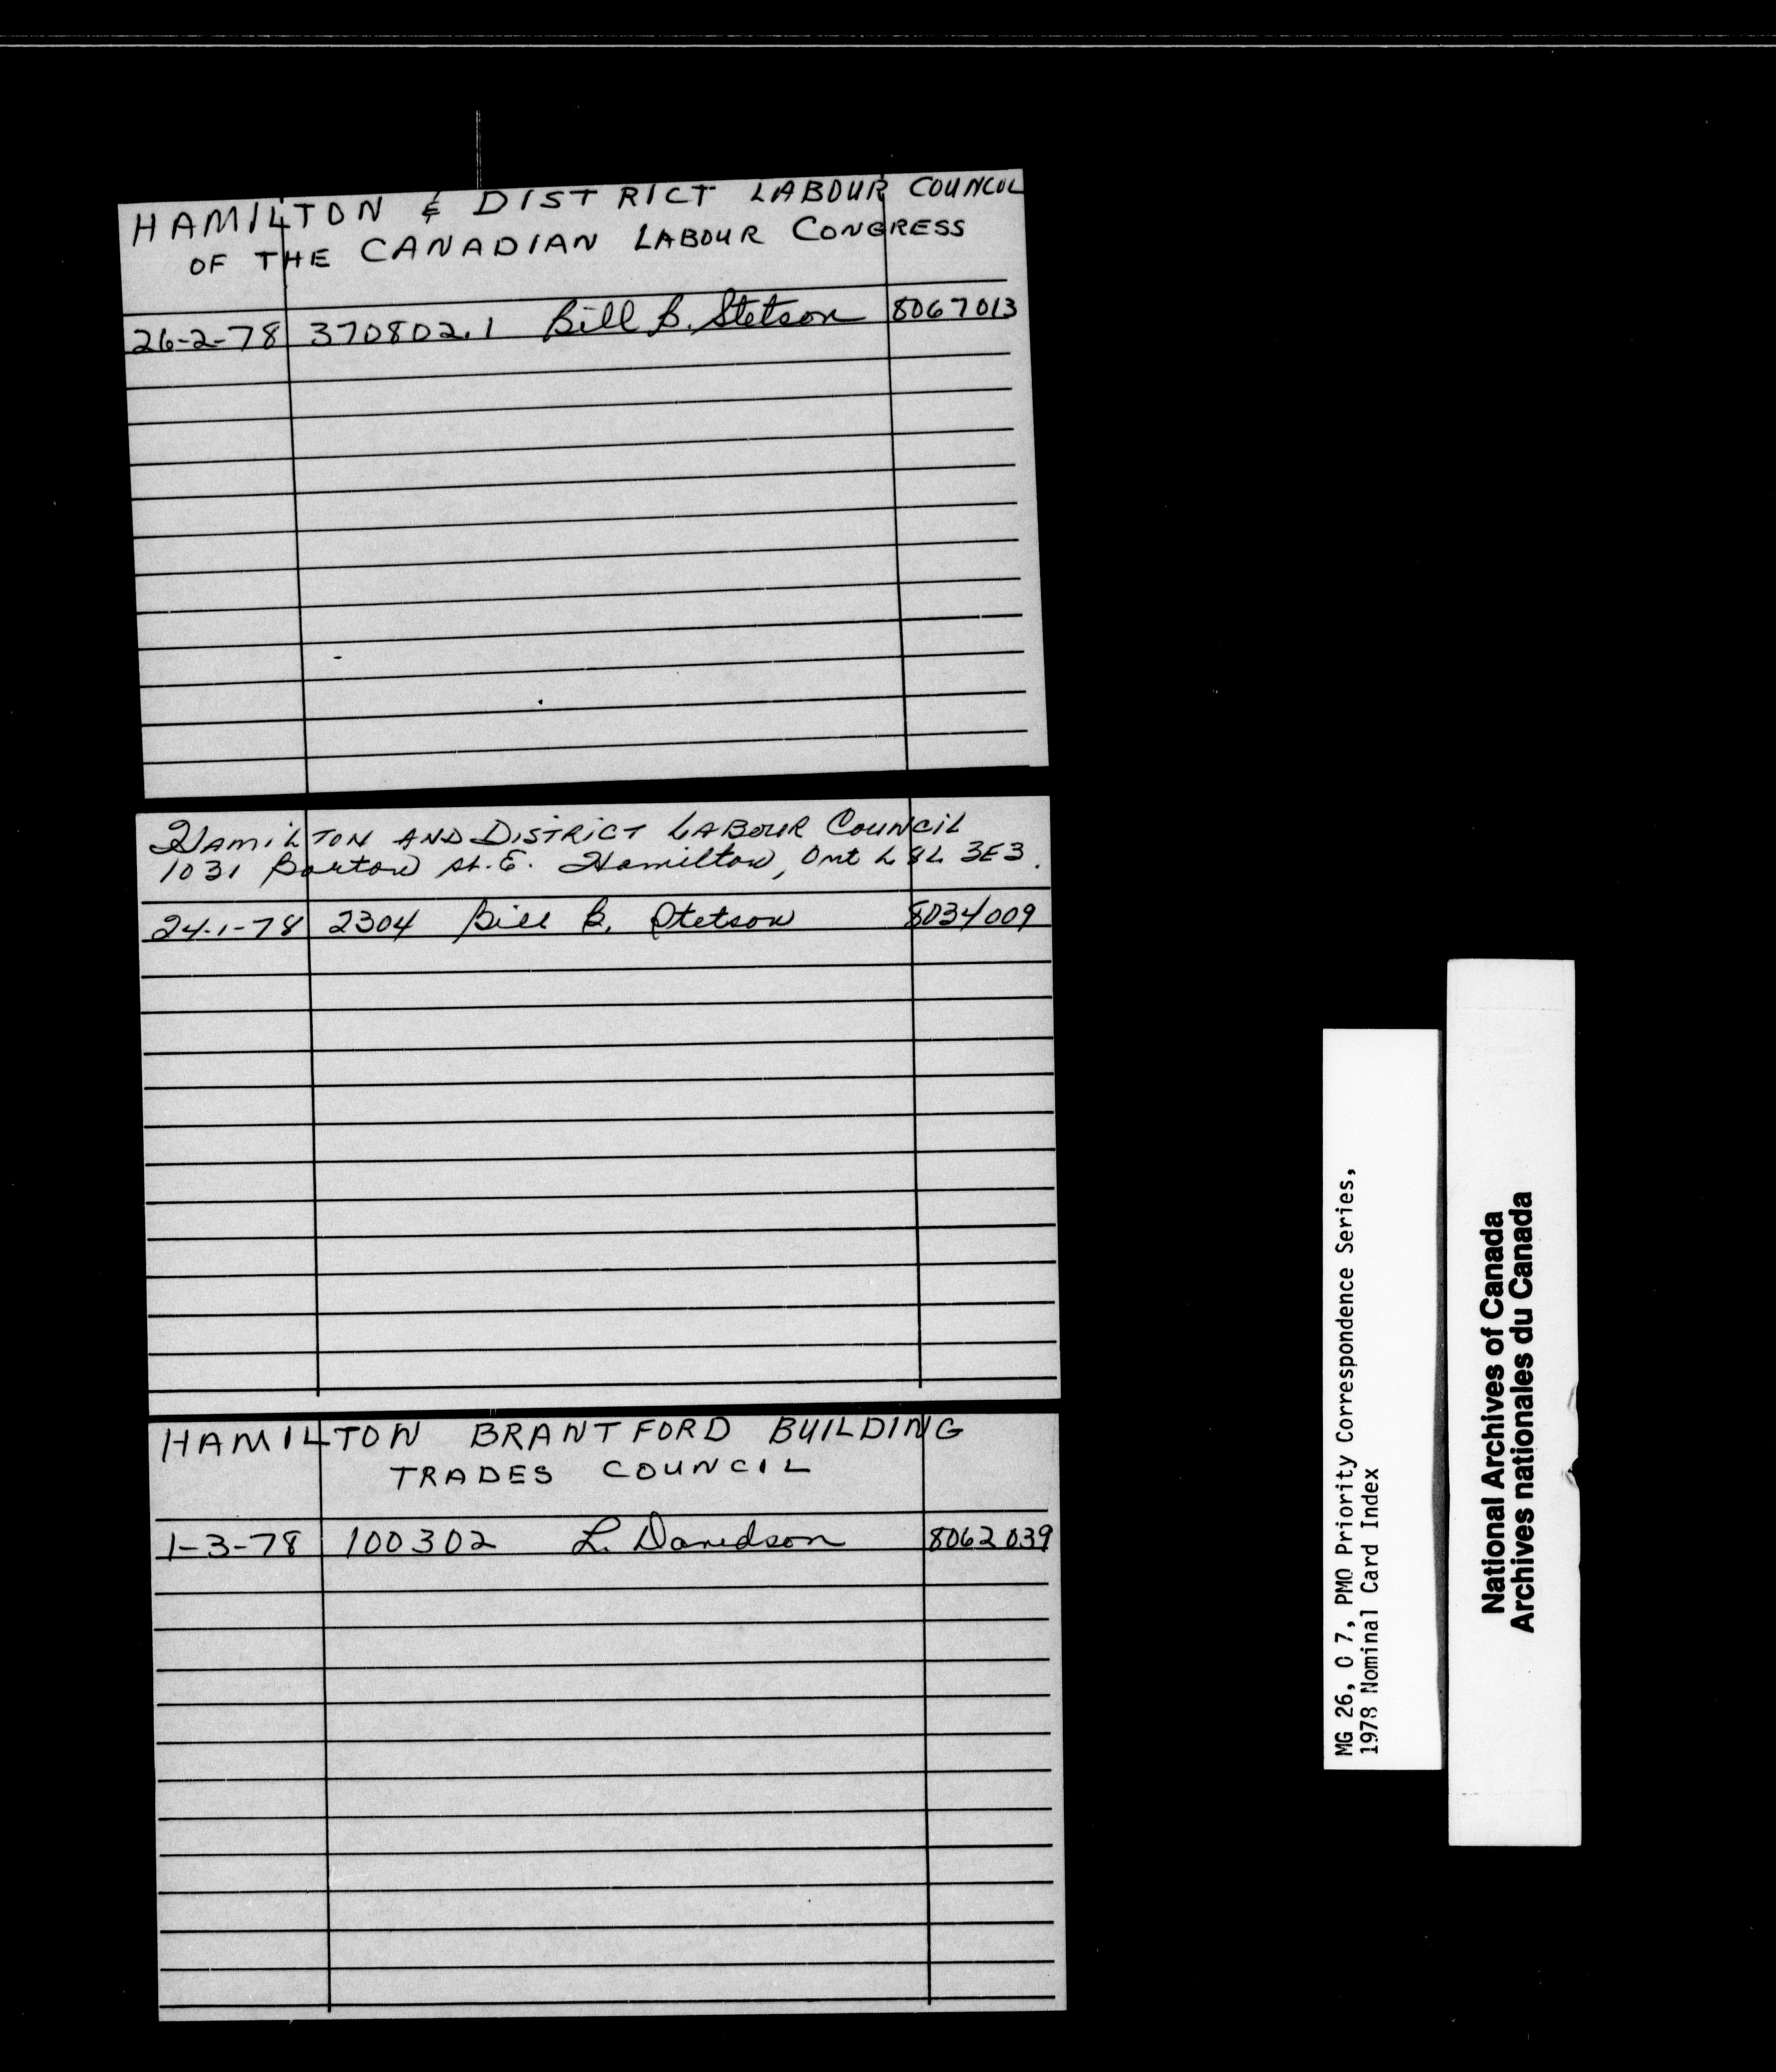 HAMILTON & DISTRICT LABOUR COUNCIL
OF THE CANADIAN LABOUR CONGRESS
26-2-78 370802.1 Bill B. Stetson 8067013
HAMILTON AND DISTRICT LABOUR COUNCIL
1031 Barton St. E. Hamilton, Ont L8L 3E3.
24-1-78 2304 Bill B. Stetson 8034009
HAMILTON BRANTFORD BUILDING
TRADES COUNCIL
1-3-78 100302 L. Davidson 8062039
MG 26, O 7, PMO Priority Correspondence Series,
1978 Nominal Card Index
National Archives of Canada
Archives nationales du Canada